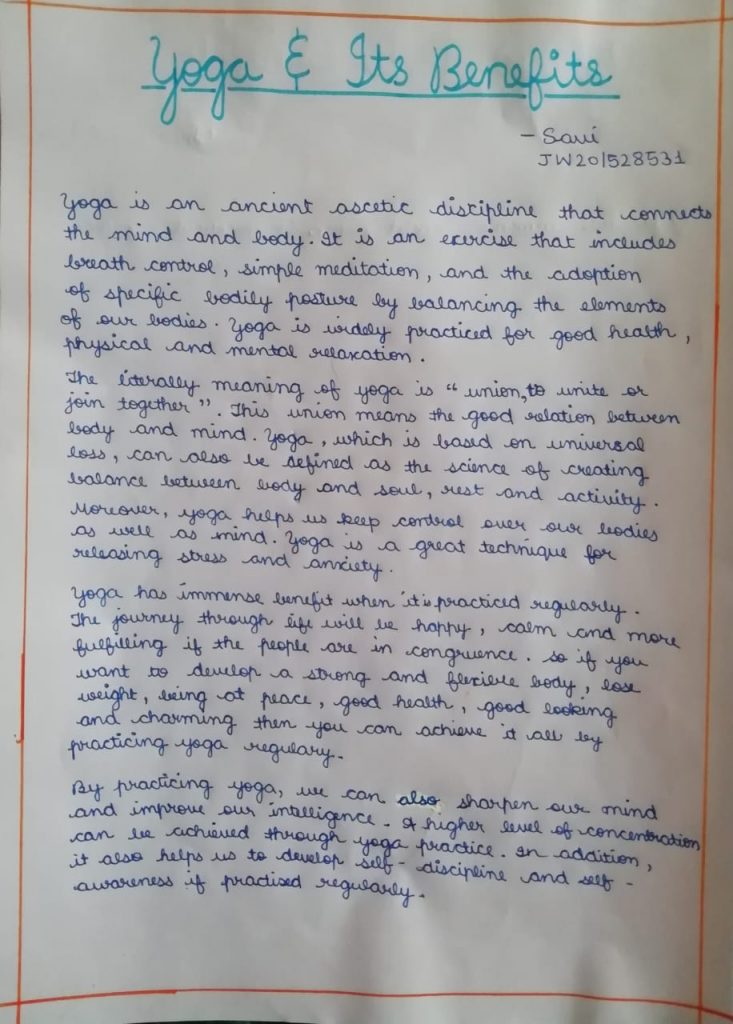 Yoga & Its Benefits
- Savi
JW201528531
Yoga is an ancient ascetic discipline that connects
the mind and body. It is an exercise that includes
breath control, simple meditation, and the adoption
of specific bodily posture by balancing the elements
of our bodies. Yoga is widely practiced for good health,
physical and mental relaxation.
The literally meaning of yoga is "union, to unite or
join together". This union means the good relation between
body and mind. Yoga, which is based on universal
loss, can also be defined as the science of creating
balance between body and soul, rest and activity.
Moreover, yoga helps us keep control over our bodies
as well as mind. Yoga is a great technique for
releasing stress and anxiety.
Yoga has immense benefit when it is practiced regularly.
The journey through life will be happy, calm and more
fulfilling if the people are in congruence. So if you
want to develop a strong and flexible body, lose
weight, being at peace, good health, good looking
and charming then you can achieve it all by
practicing yoga regulary.
By practicing yoga, we can also sharpen our mind
and improve our intelligence. A higher level of concentration
can be achieved through yoga practice. In addition,
it also helps us to develop self-discipline and self-
awareness if practised regularly.